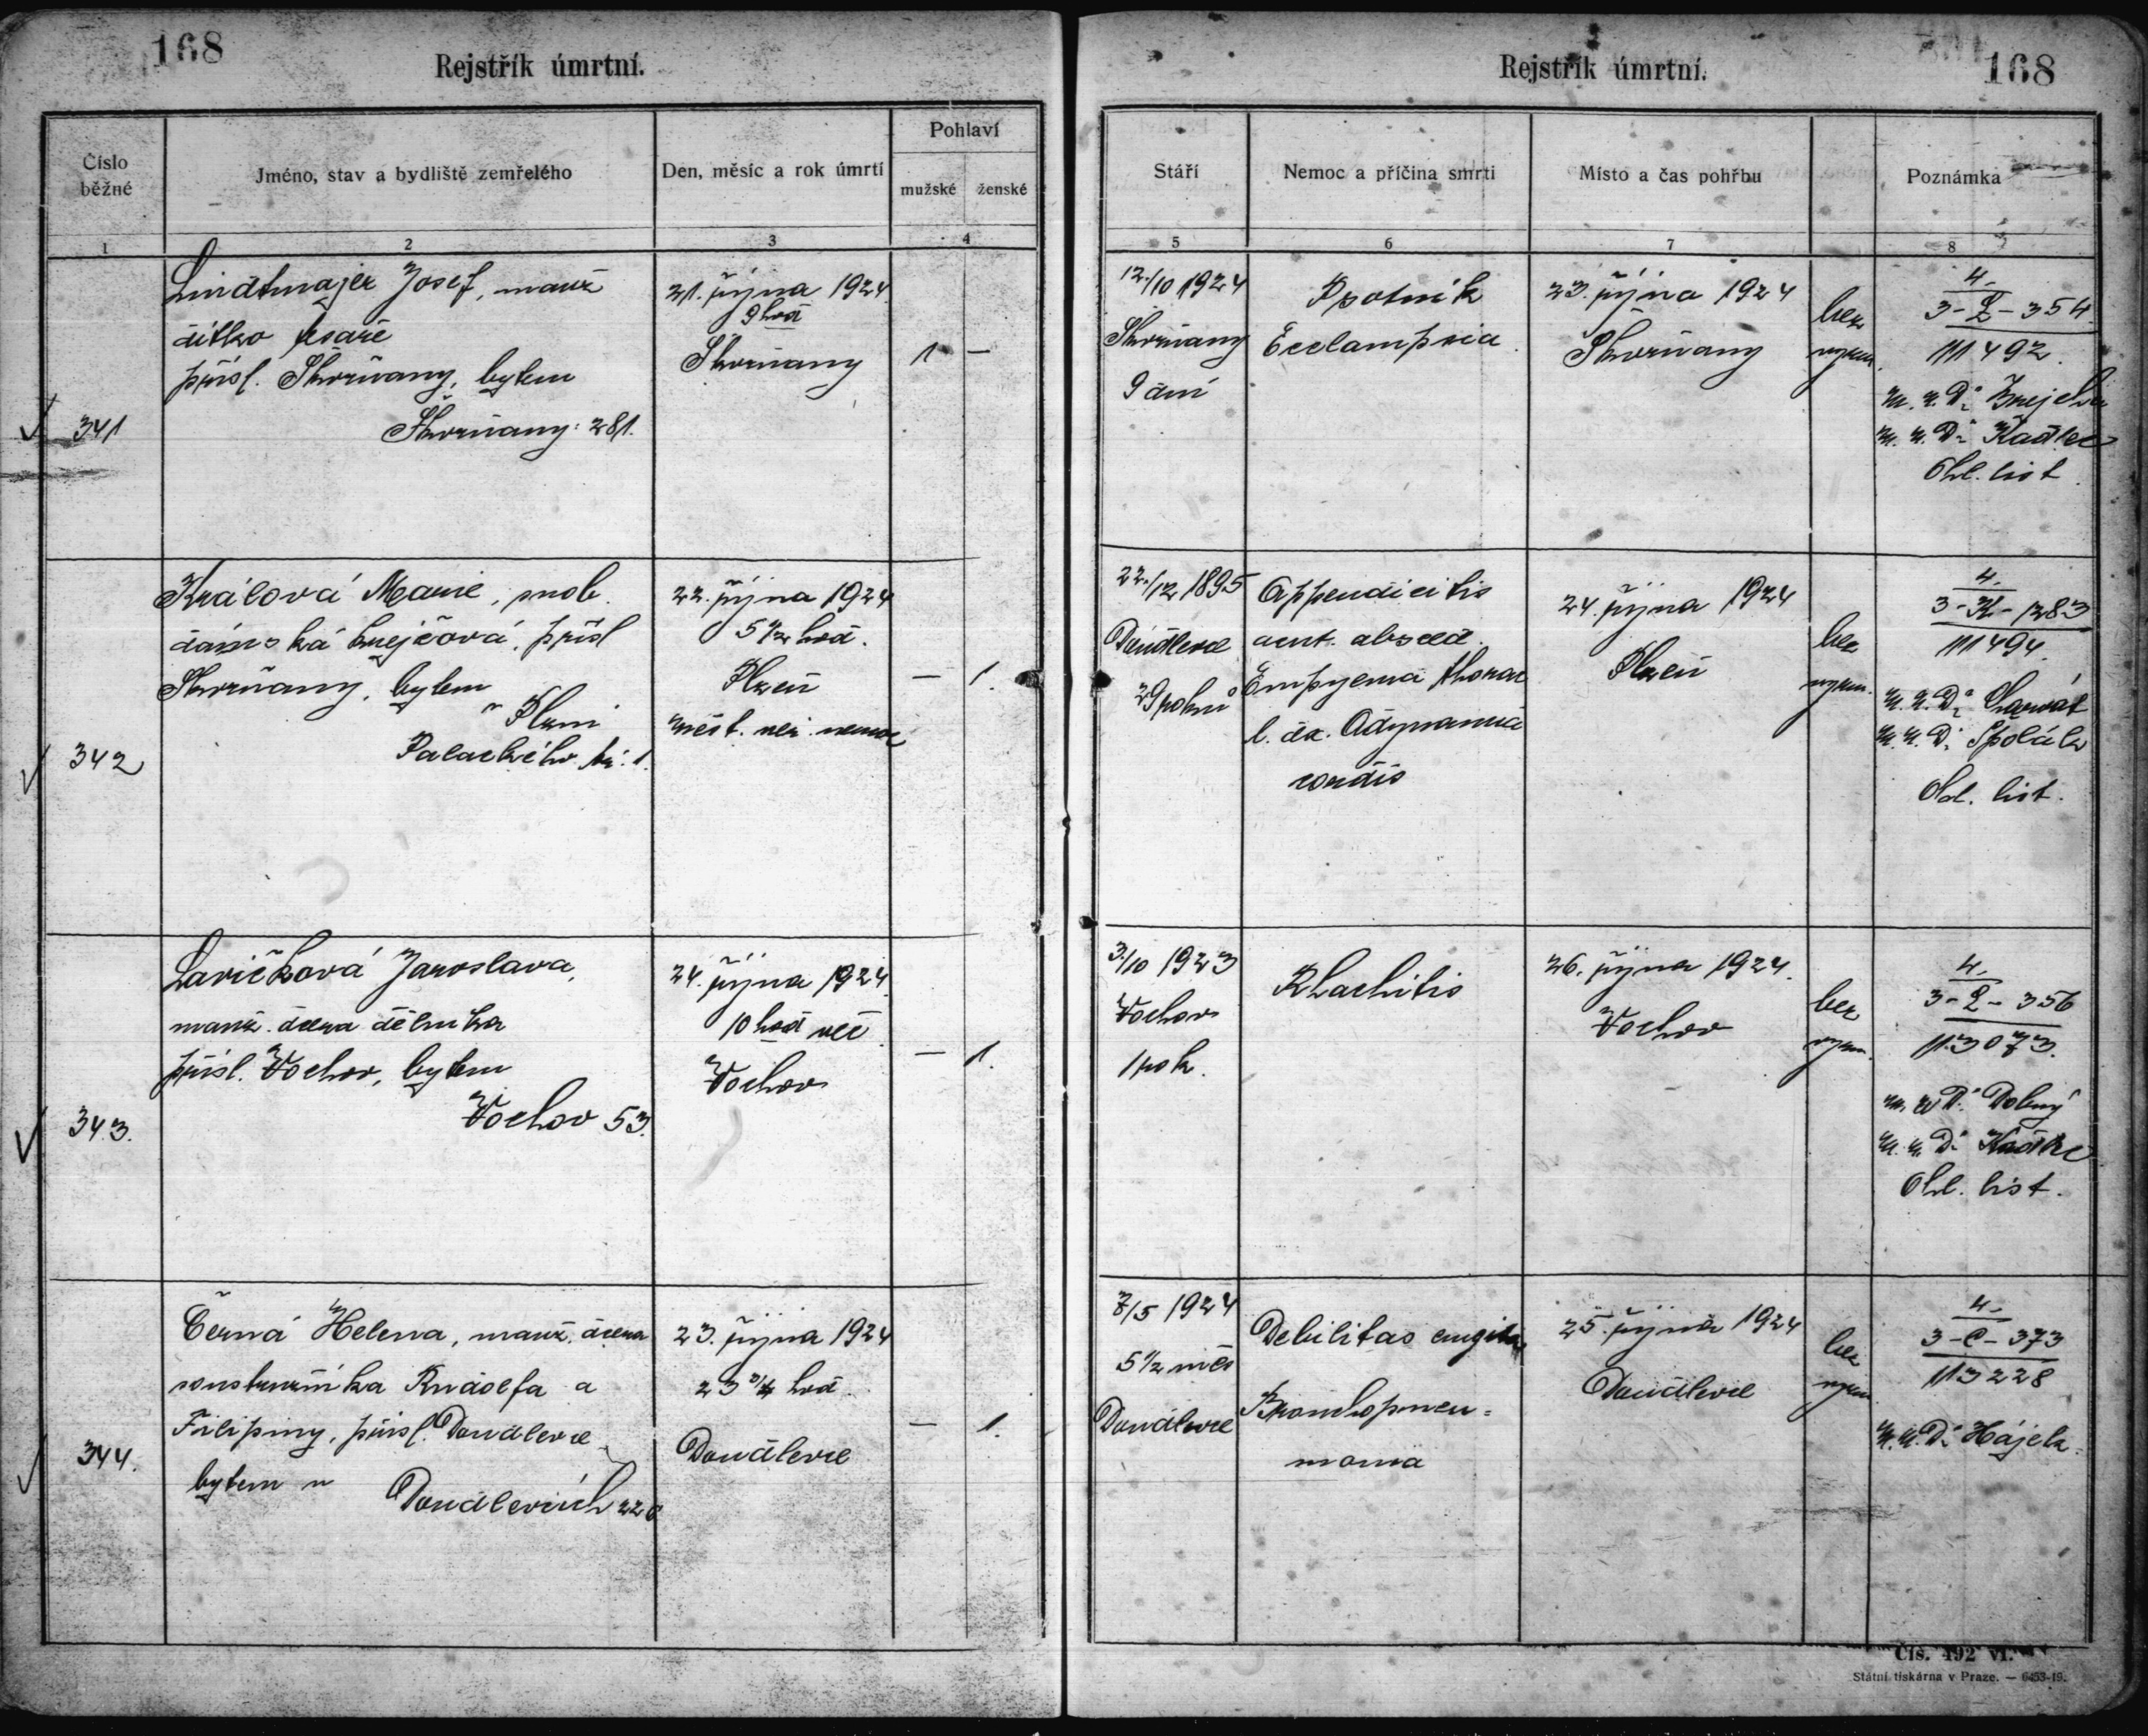 168
Rejstřík úmrtní.
Číslo běžné
Jméno, stav a bydliště zemřelého
Den, měsíc a rok úmrtí
Pohlaví
mužské
ženské
1
2
3
4
341
Lindtmajer Josef, manž
dítko tesaře
přísl. Skvrňany, bytem
Skvrňany: 281.
21. října 1924
9 hod
Skvrňany
1 —
342
Králová Marie, svob.
dámská krejčová, přísl
Skvrňany, bytem
v Plzni
Palackého tř: 1.
22. října 1924
5 1/2 hod.
Plzeň
měst. nemoc
— 1.
343.
Lavičková Jaroslava,
manž. dcera dělníka
přísl. Vochov, bytem
Vochov 53.
24. října 1924
10 hod več
Vochov
— 1.
344.
Černá Helena, manž. dcera
soustružníka Rudolfa a
Filipiny, přísl. Doudlevce
bytem v
Doudlevcích 226
23. října 1924
23 3/4 hod.
Doudlevce
— 1.
Rejstřík úmrtní.
168
Stáří
Nemoc a příčina smrti
Místo a čas pohřbu
Poznámka
5
6
7
8
12./10 1924
Skvrňany
9 dní
Psotník
Ecclampsia
23. října 1924
Skvrňany
bez
vyzn.
4.
3-L-354
111492
m. ú. Dr
m. ú. Dr Kadlec
Ohl. list
22./12 1895
Doudlevce
29 roků
Appendicitis
acut. absced.
Empyema thorac
l. dx. Adynamia
cordis
24. října 1924
Plzeň
bez
vyzn.
4.
3-K-1283
111494
m. ú. Dr Charvát
m. ú. Dr
Ohl. list.
3/10 1923
Vochov
1 rok.
Rhachitis
26. října 1924.
Vochov
bez
vyzn.
4.
3-L-356
113073.
m. ú. Dr
m. ú. Dr Kadlec
Ohl. list.
7/5 1924
5 1/2 měs
Doudlevce
Debilitas
Bronchopneu=
monia
25. října 1924
Doudlevce
bez
vyzn.
4.
3-C-373
113228
m. ú. Dr Hájek.
Čís. 492 VI.
Státní tiskárna v Praze. — 6453-19.